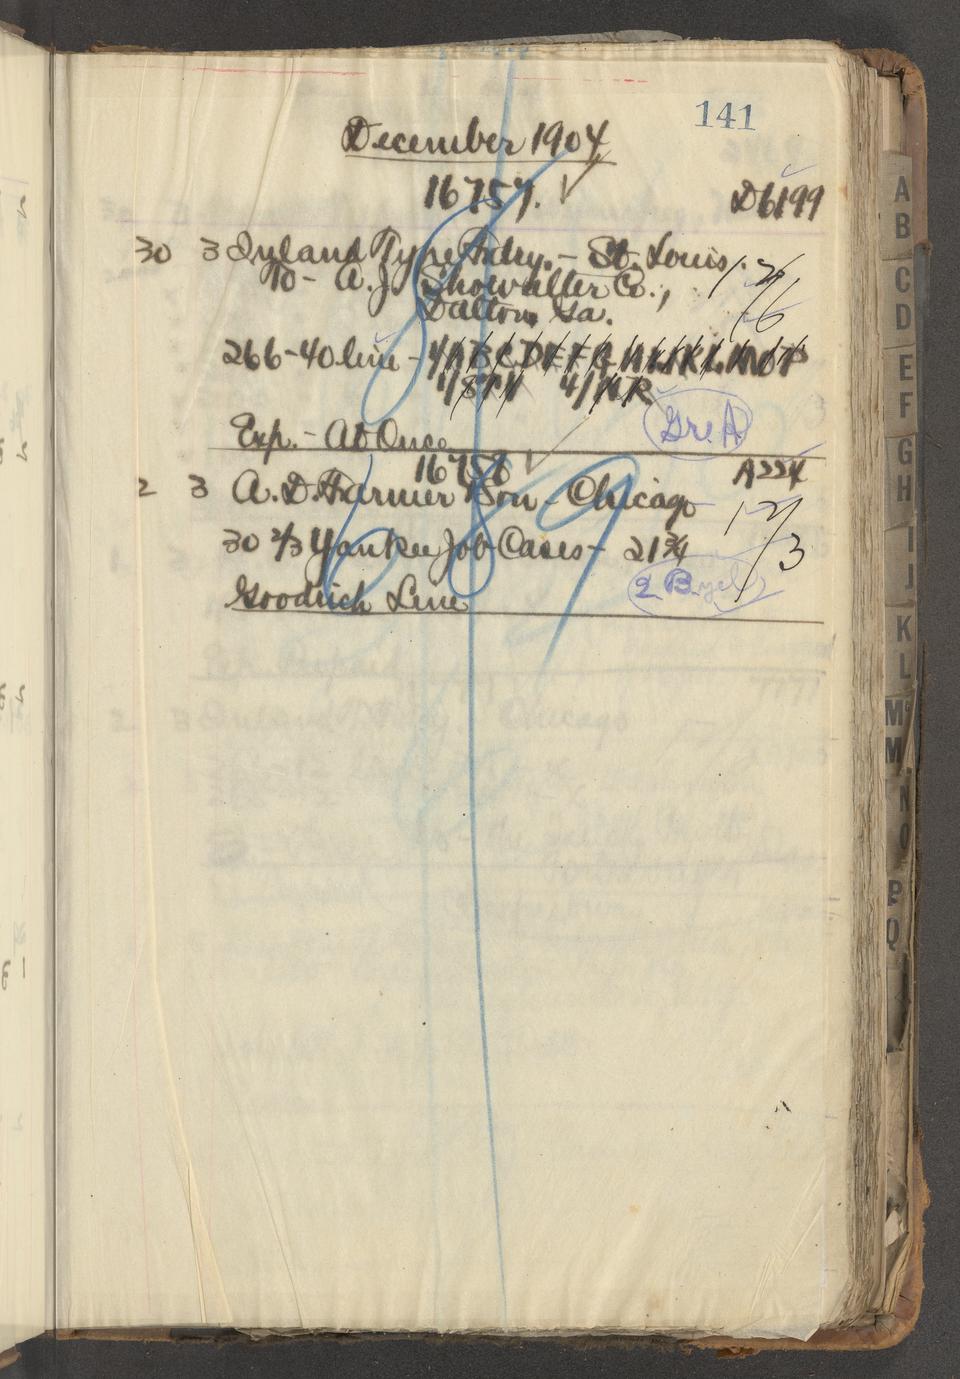 141
December 1904
16757. ✓
D6199
30 3 Inland Type Fdry. - St. Louis.
To - A.J. Showalter Co.,
Dalton, Ga.
12/6
266-40 line - 4/A B C D E F G H I J K L M N O P
4/
Exp. - At Once
Gr. A
16758 ✓
A224
2 3 A. D. Farmer & Son - Chicago
12/3
30 2/3 Yankee Job Cases - 21 3/4
Goodrich Line
A
B
C
D
E
F
G
H
I
J
K
L
Mc
M
N
O
P
Q